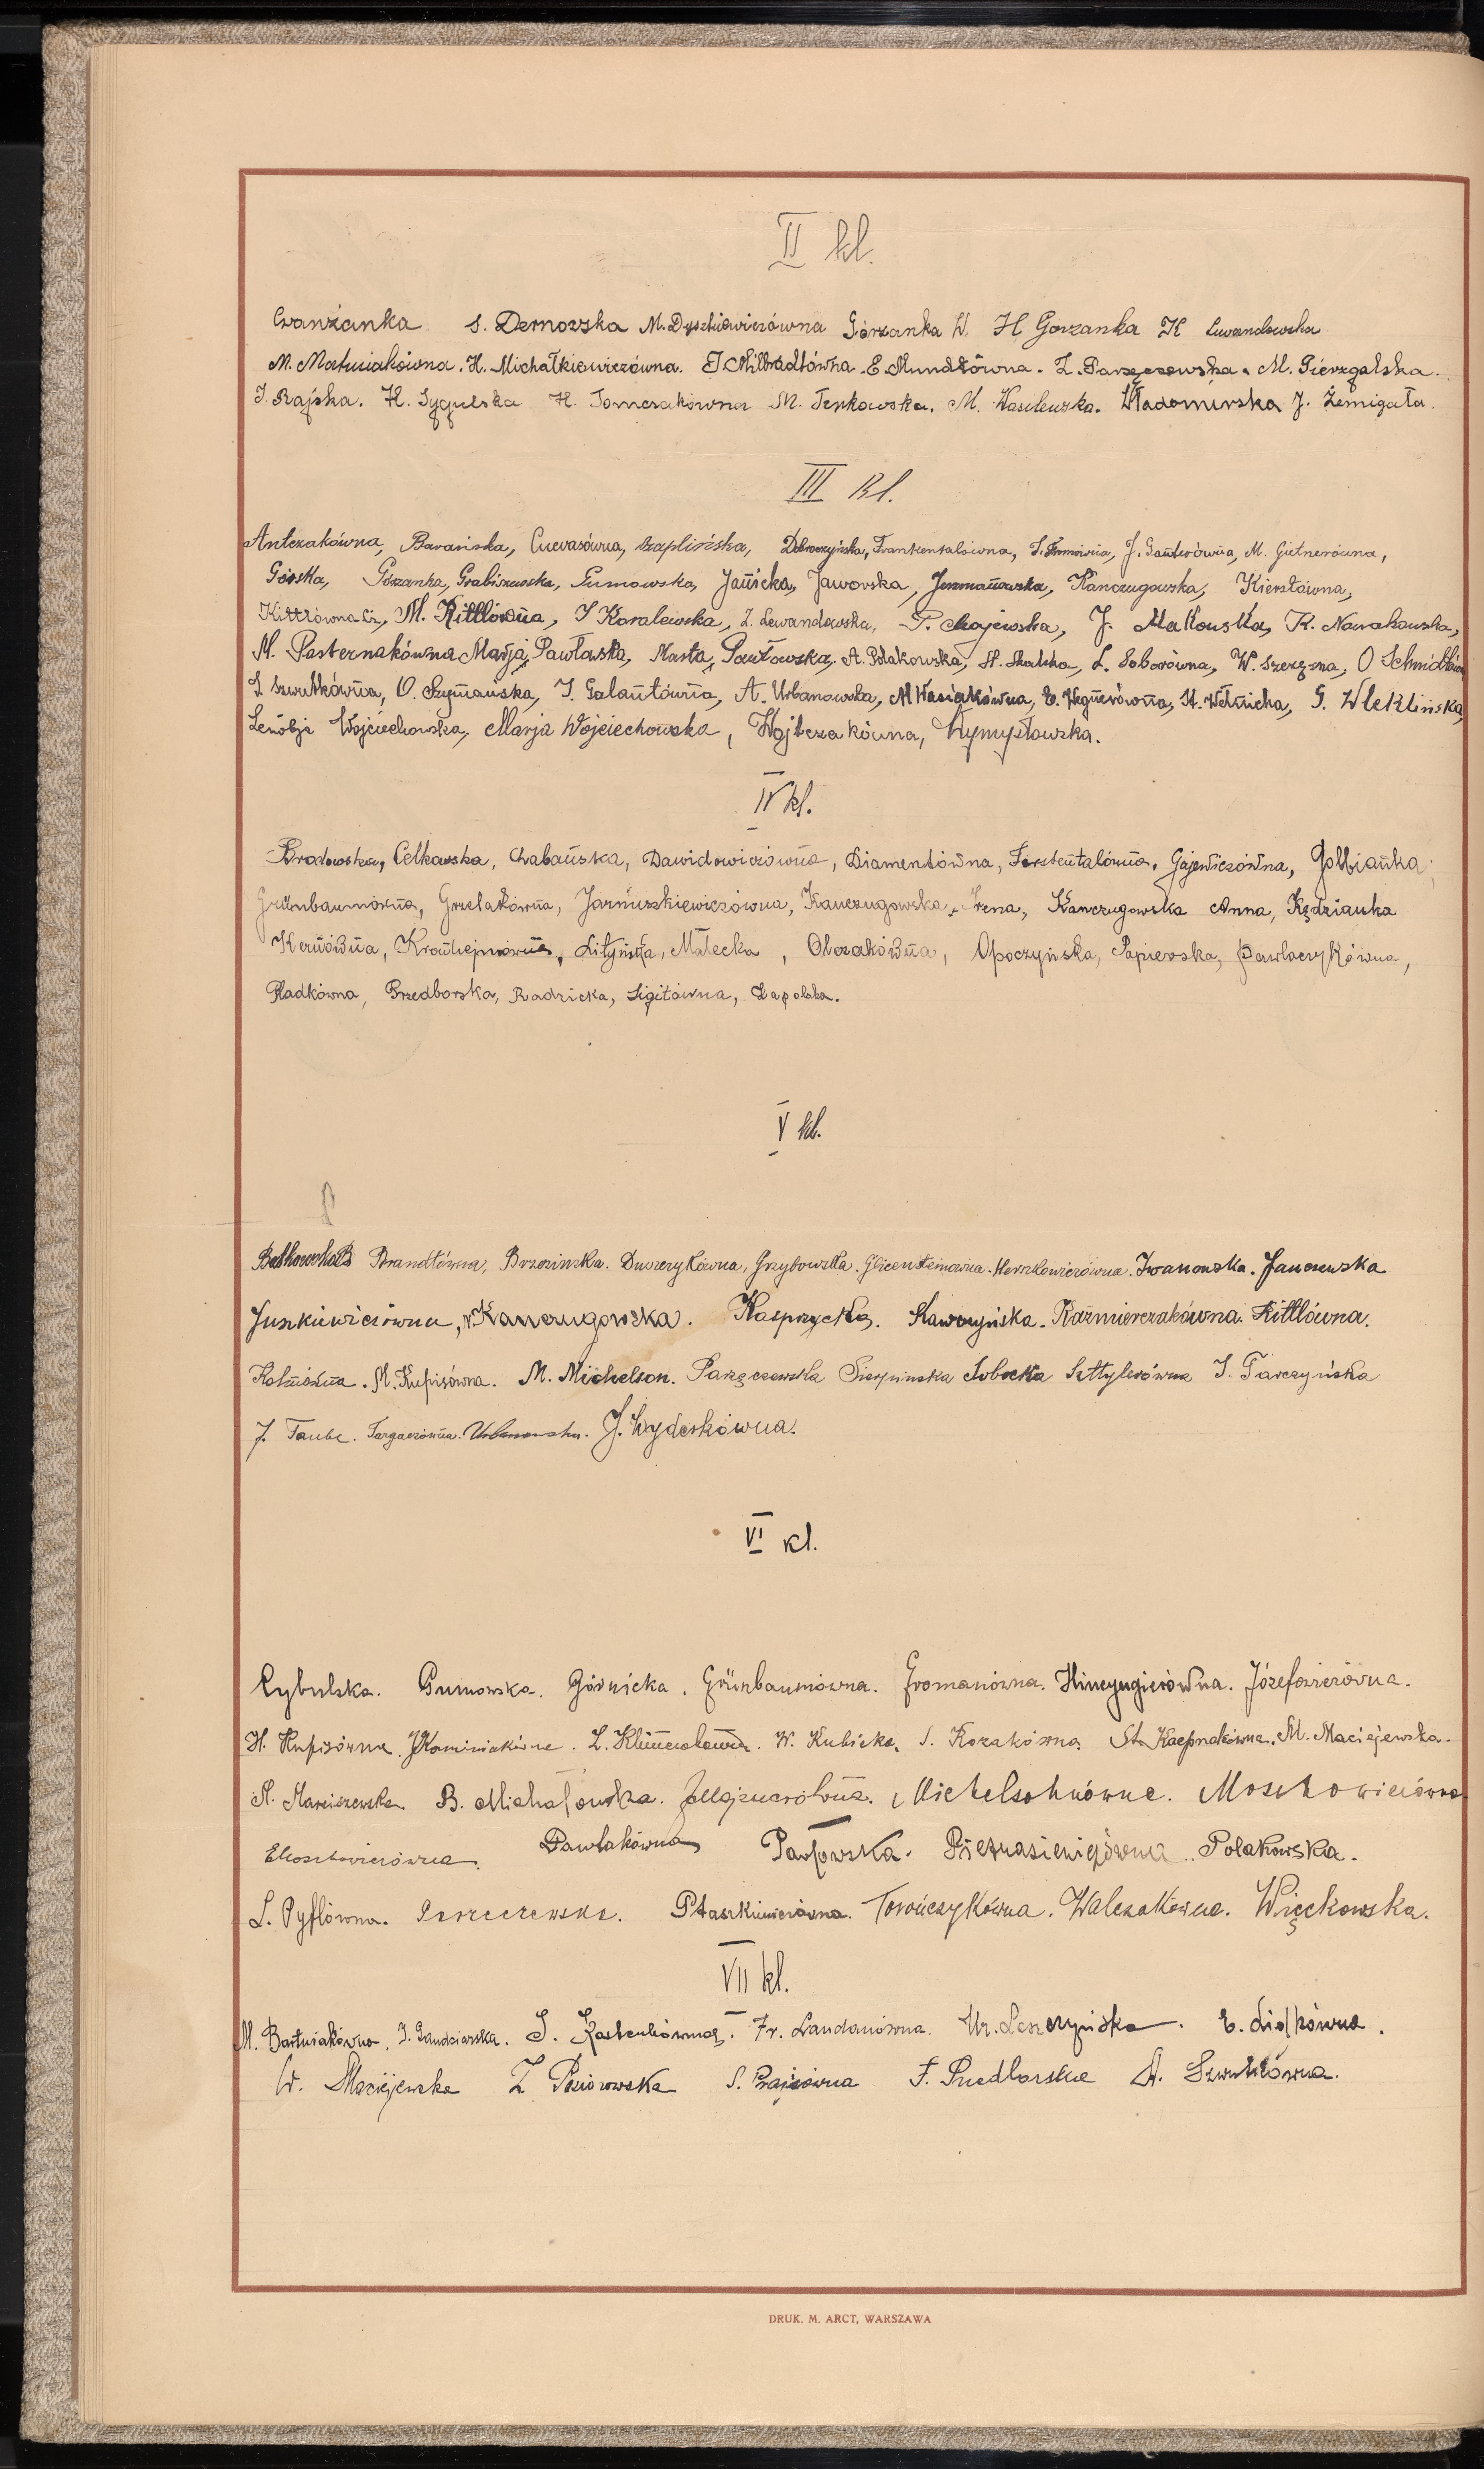 II kl.
S. Dernowska M. Dyszkiewiczówna Górzanka W. H Gorzanka K Lewandowska
M. Matusiakówna. H. Michałkiewiczówna. J. Milbradtówna. E. Mundtówna. Z. Parzęczewska. M. Pierzgalska.
J. Rajska. H. Sygulska H. Tomczakówna M. Tenkowska. M. Wasilewska. Władomirska J. Żemigała.
III kl.
Antczakówna, Barańska, Czaplińska, Dobroczyńska, Frankentalówna, J. Gauterówna, M. Gutnerówna,
Górska, Górzanka, Grabiszewska, Gumowska, Janicka, Jaworska, Juszmanowska, Kańczugowska, Kierstówna,
Kittlówna M. Kittlówna, J Kowalewska, Z. Lewandowska, P. Majewska, J. Makowska, K. Nowakowska,
M. Pasternakówna Marja Pawłowska, Marta Pawłowska, A. Polakowska, H. Skalska, L. Soborówna, W. O Schmidtówna
Z Szwutkówna, O. Szymańska, J. Galantówna, A. Urbanowska, M Wasiakówna, E. Wegnerówna, H. Wełnicka, G. Wleklińska,
Zenobja Wojciechowska, Marja Wojciechowska, Wojtczakówna, Wymysłowska.
IV kl.
Brodowska, Celkowska, Chabańska, Dawidowiczówna, Diamentówna, Ferstentalówna, Gajewiczówna, Golbianka,
Grünbaumówna, Grzelakówna, Jarnuszkiewiczówna, Kańczugowska Irena, Kańczugowska Anna, Kędzianka
Kernówna, Lityńska, Małecka, Olczakówna, Opoczyńska, Papierska, Pawlaczykówna,
Pladkówna, Przedborska, Radzicka, Sigitówna, Zapolska.
V kl.
Brandtówna, Brzezińska. Duszczykówna, Grzybowska. Glicensteinówna. Herszkowiczówna. Iwanowska. Janczewska
Juszkiewiczówna, Kańczugowska. Kasprzycka. Kawczyńska. Kaźmierczakówna. Kittlówna.
M. Kupisówna. M. Michelson. Parzęczewska Sierpińska Sobocka Sztylerówna J. Tarczyńska
J. Taube. Targaczówna. Urbanowska. J. Wyderkówna.
VI kl.
Cybulska. Gumowska. Górnicka. Grünbaumówna. Gromanówna. Hinczyngierówna. Józefowiczówna.
H. Kupisówna. J. Kominiakówna. Z. Klimczakówna. W. Kubicka. S. Kozakówna. M. Maciejewska.
A. Marciszewska. B. Michałowska. J. Majznerówna. Michelsohnówna. Moszkowiczówna
E. Moszkowiczówna. Pawlakówna Pawłowska. Pietrasiewiczówna. Polakowska.
L. Pyflówna. Ptaszkiewiczówna. Torończykówna. Walczakówna. Więckowska.
VII kl.
M. Bartniakówna. J. Gaudziarska. J. Kastenbówna. Fr. Landauówna. Ur. Leszczyńska. E. Lidkówna.
W. Maciejewska Z. Piórowska S. Prajsówna F. Przedborska A. Szwutkówna.
DRUK. M. ARCT, WARSZAWA